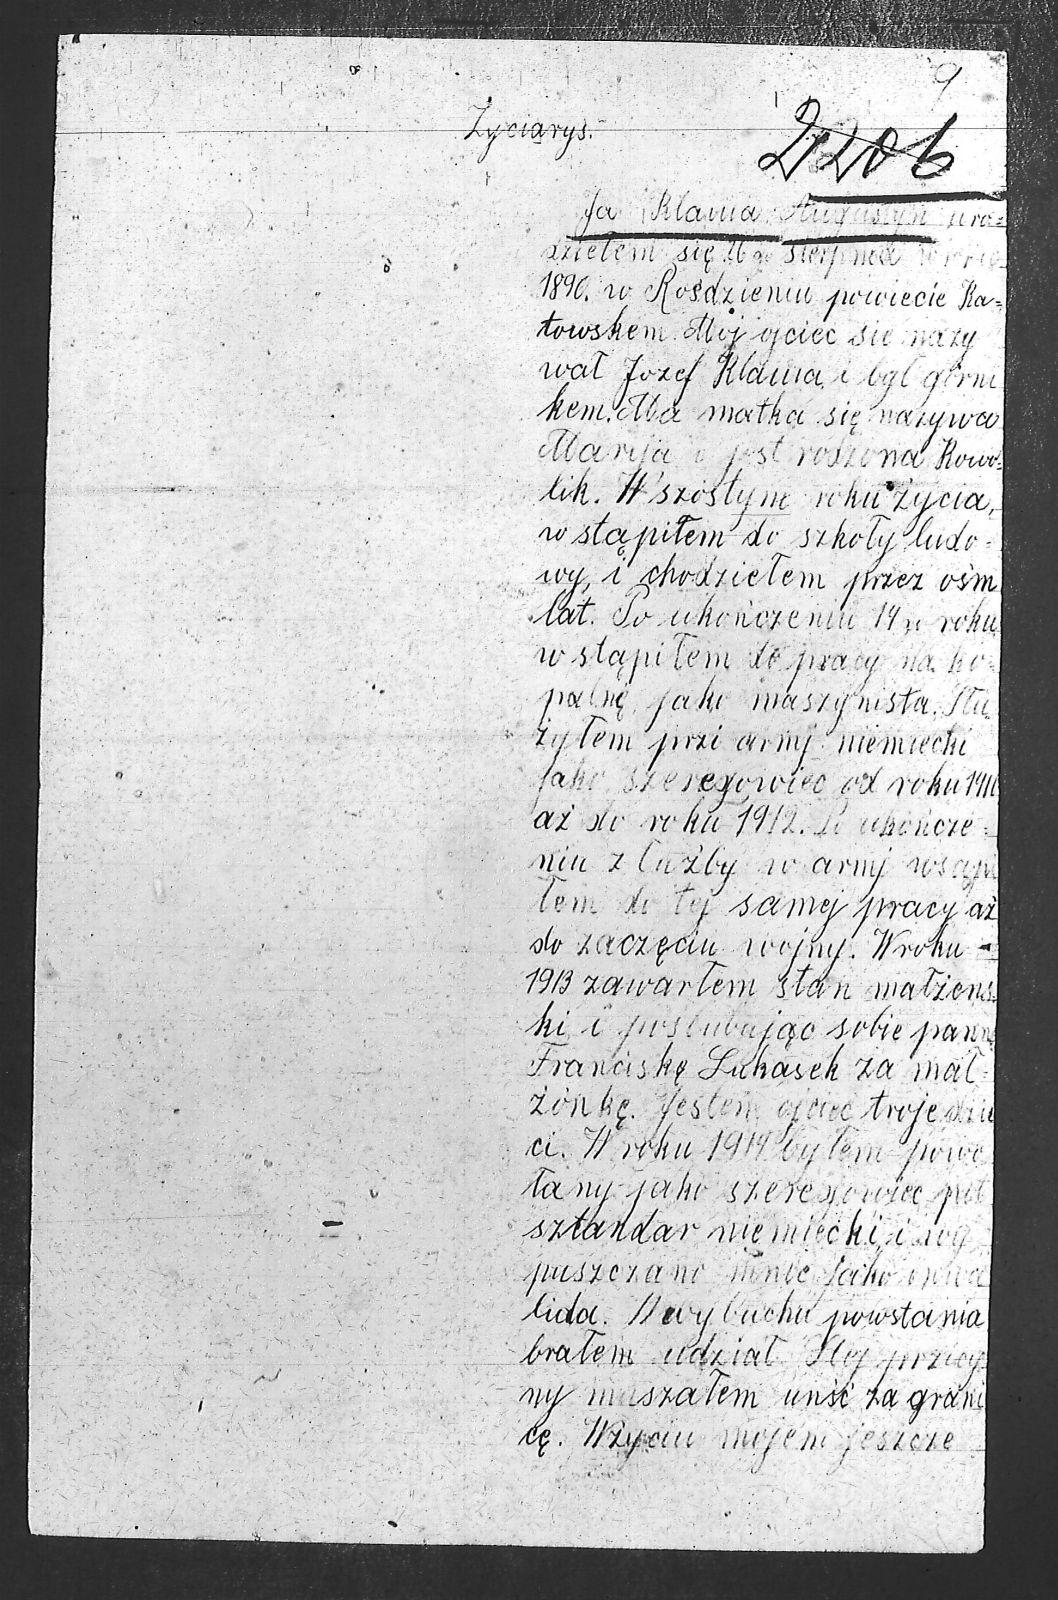 9
Życiarys.
2206
Ja Klama Augustyn uro=
dziełem się 16 go sierpnia w roku
1890. w Roździeniu powiecie Ka=
towskem. Mój ojciec się nazy
wał Jozef Klama, i był górni
kem. Ma matka się nazywa
Maryja i jest rodzona Kowo=
lik. W szóstym roku życia,
wstąpiłem do szkoły ludo=
wy, i chodziełem przez ośm
lat. Po ukończeniu 14 n roku
wstąpiłem do pracy na ko=
palnę, jako maszynista. Słu=
żyłem przi armj niemiecki
jako szeregowiec od roku 1910
aż do roku 1912. Po ukończe=
niu złużby w armj wsąpi
łem do tej samej pracy aż
do zaczęciu wojny. W roku -
1913 zawarłem stan małżens=
ki i poślubując sobie pannę
Franciskę Lukasek za mał=
żónkę. Jestem ojciec troje dzie
ci. W roku 1914 byłem powo
łany jako szeregowiec pod
sztandar niemiecki, i wy
puszczano mnie jako inwa
lida. W wybuchu powstania
brałem udział. Stej przicy
ny muszałem unść za grani
cę. W życiu mojem jeszcze